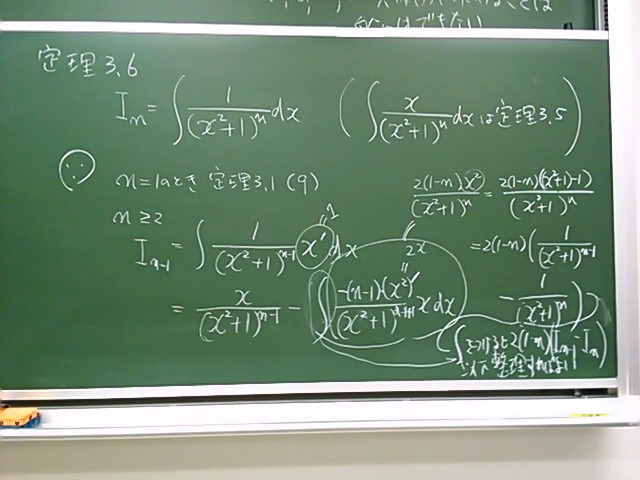 向にはできない
定理3.6
I_n = ∫ 1/(x²+1)^n dx (∫ x/(x²+1)^n dx は定理3.5)
n=1のとき 定理3.1 (9)
n≥2
I_{n-1} = ∫ 1/(x²+1)^{n-1} x' dx
1
= x/(x²+1)^{n-1} - ∫ -(n-1)·(x²)'/(x²+1)^{n-1+1} x dx
2x
2(1-n)x²/(x²+1)^n = 2(1-n)(x²+1-1)/(x²+1)^n
= 2(1-n)(1/(x²+1)^{n-1}
- 1/(x²+1)^n)
∫をつけると2(1-n)(I_{n-1}-I_n)
以下整理すればよい